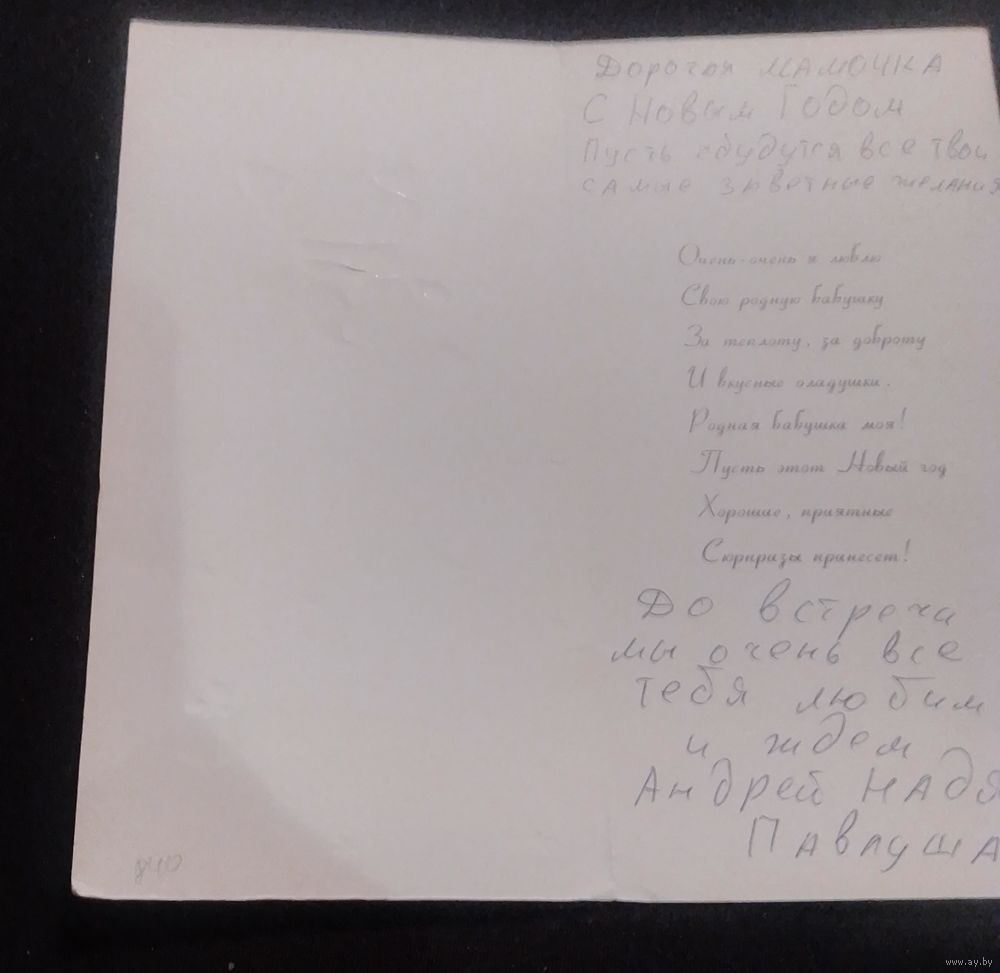 Дорогая мамочка
С Новым Годом
Пусть сбудутся все твои
самые заветные желания
Очень-очень я люблю
Свою родную бабушку
За теплоту, за доброту
И вкусные оладушки.
Родная бабушка моя!
Пусть этот Новый год
Хорошие, приятные
Сюрпризы принесет!
До встречи
мы очень все
тебя любим
и ждем
Андрей Надя
Павлуша
www.ay.by